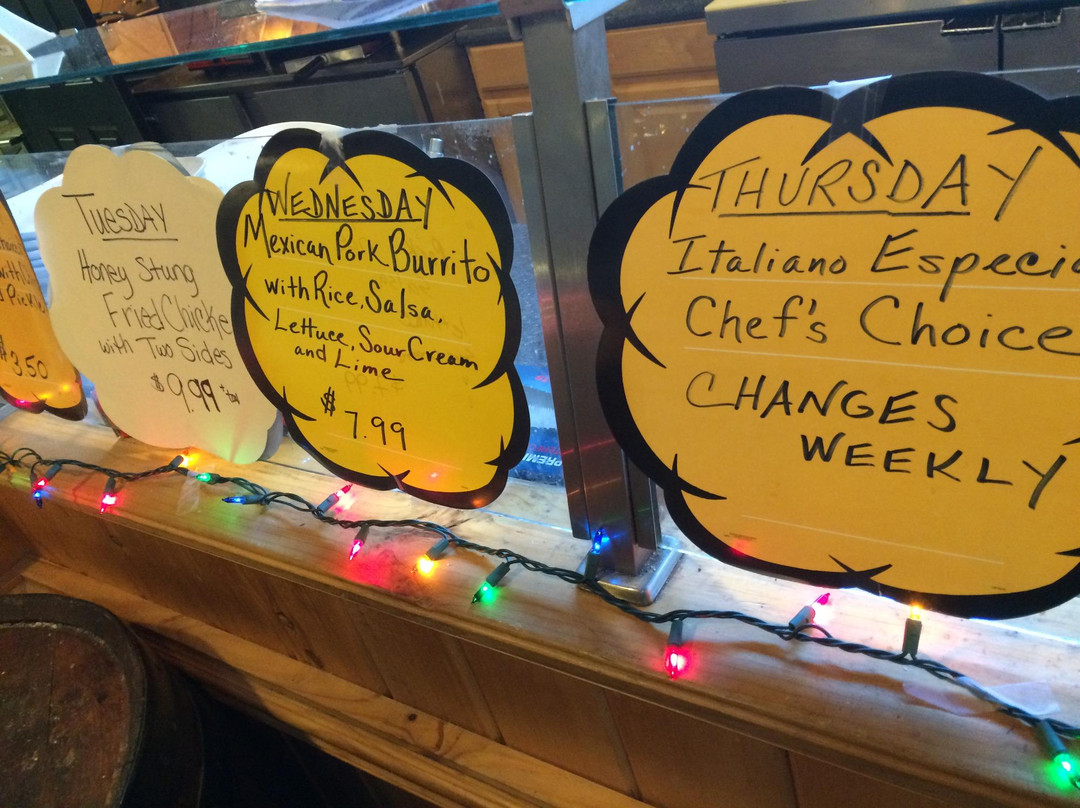 with
Pick
$3.50
TUESDAY
Honey Stung
Fried Chicke
with Two Sides
$9.99
WEDNESDAY
Mexican Pork Burrito
with Rice, Salsa,
Lettuce, Sour Cream
and Lime
$7.99
THURSDAY
Italiano Especia
Chef's Choice
CHANGES
WEEKLY
PREMI